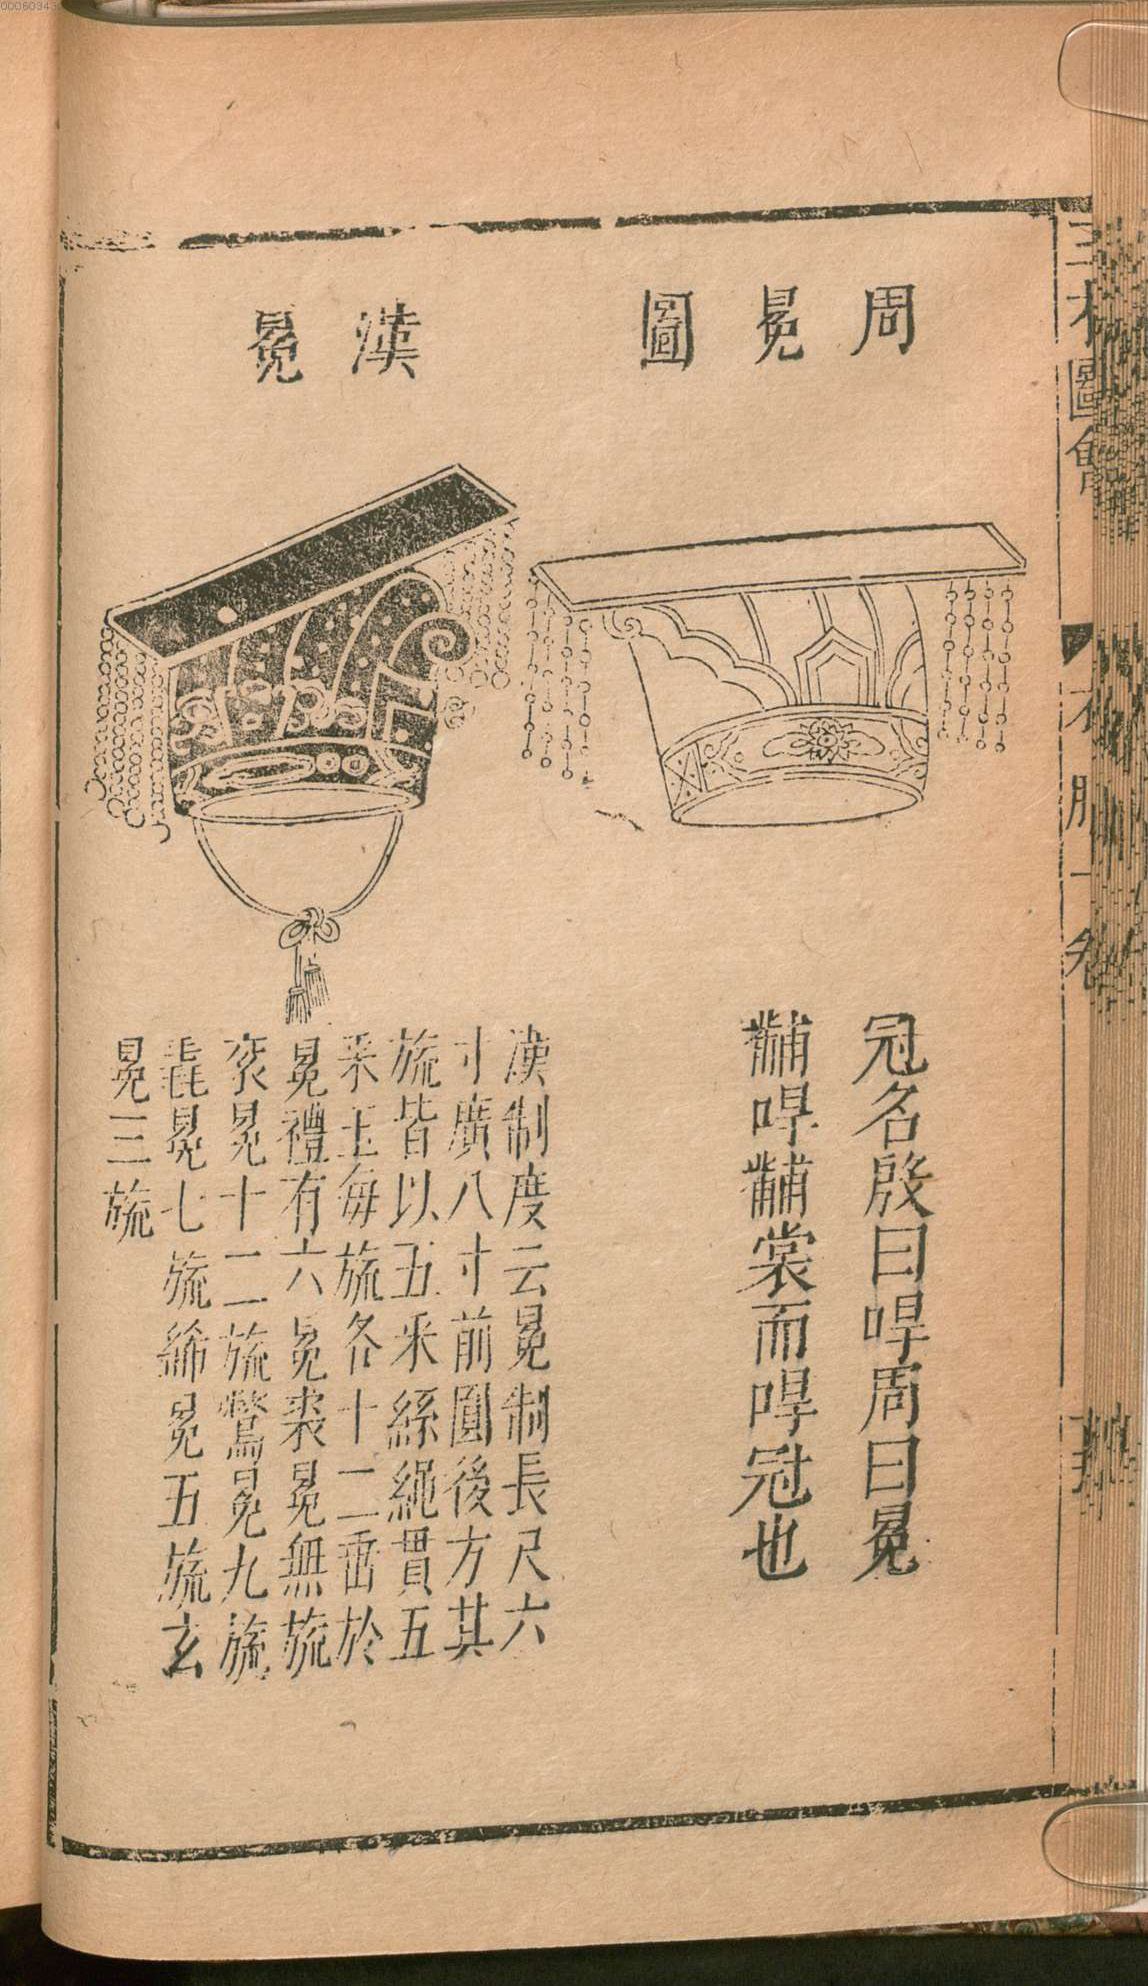 周冕圖
漢冕
冠名殷曰哻周曰冕
黼哻黼裳而哻冠也
漢制度云冕制長尺六
寸廣八寸前圓後方其
旒皆以五采絲繩貫五
采玉每旒各十二垂於
冕禮有六冕裘冕無旒
衮冕十二旒鷩冕九旒
毳冕七旒絺冕五旒玄
冕三旒
三才圖會
衣服一卷